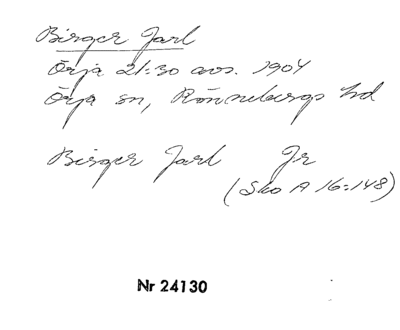 Birger Jarl
Örja 21:30 avs. 1904
Örja sn, Rönnebergs hd
Birger Jarl Jr
(Sko A 16:148)
Nr 24130